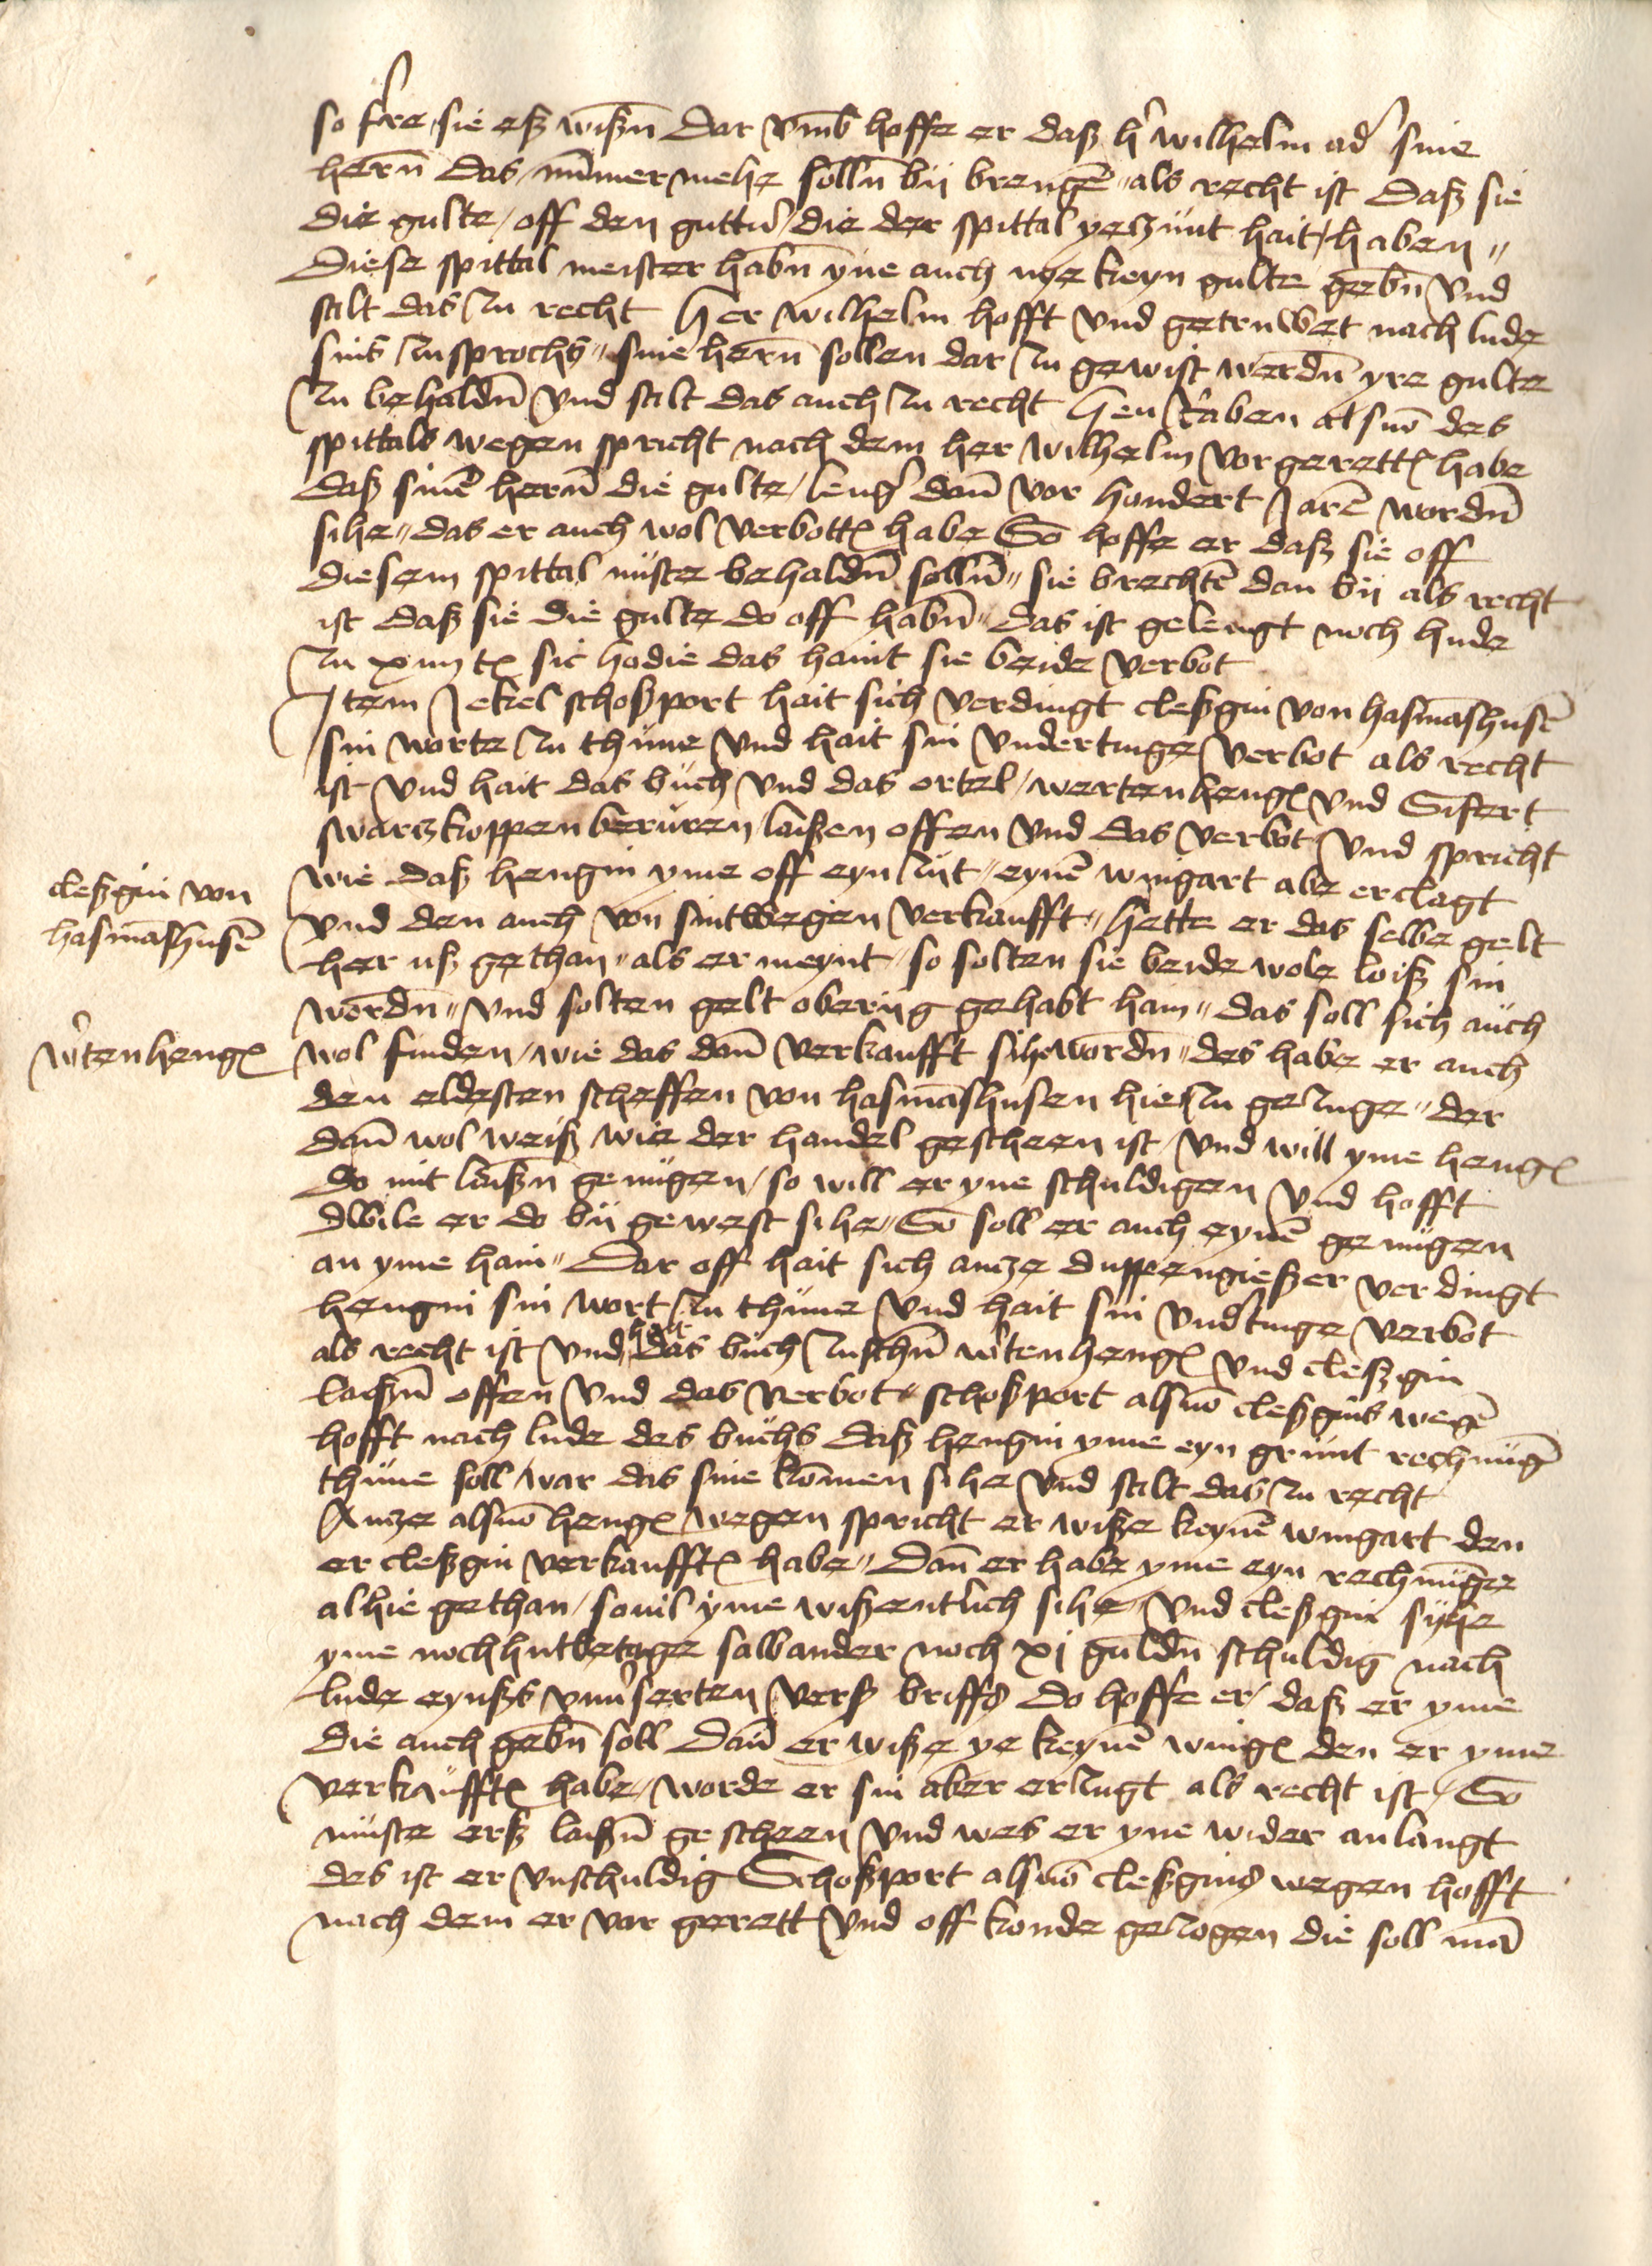 so ferre sie eß wißen Dar vmb hoffe er daß h' wilhelm ad' sine
hern̄ das nūmer mehe solln̄ bÿ brengē als recht ist Daß sie
die gulte off den guttn̄ die der spittal yeczunt hait haben
Diese spittal meister habn̄ yne auch nye keyn gulte gebn̄ vnd
stilt das zu recht Her wilhelm hofft vnd getruwet nach lude
sins zusprochs sine hern̄ sollen dar zu gewist werdn̄ yre gulte
zu behaldn̄ vnd stilt das auch zu recht Hen raben als mō des
spittals wegen spricht nach dem her wilhelm vor gerett habe
daß sinē hern̄ die gulte leng' dan̄ vor hondert Jarē wordn̄
sihe das er auch wol verbott habe So hoffe er daß sie off
diesem spittal nůste behaldn̄ solln̄ sie brechtē dan bÿ als recht
ist daß sie die gulte do off habn̄ das ist gelengt noch hude
zu xiiij t sic hodie das haint sie beide verbot
Item Jekel schoßport hait sich verdingt cleßgin von hasmāshusē
sin worte zu thůne vnd hait sin vndertinge verbot als recht
ist vnd hait das bůch vnd das ortel wertenheng vnd Sifert
swarczkoppen berůren laißen offen vnd das verbot vnd spricht
wie daß hengin yme off eyn zijt eynē wingart abe erclagt
vnd den auch von sint wegen verkaufft hette er das selbe gelt
her uß gethan als er meynt so solten sie beide wole loiß sin
wordn̄ vnd solten gelt oberijg gehabt hain das soll sich auch
wol finden wie das dan̄ verkaufft sihe wordn̄ des habe er auch
den eldesten scheffen von hasmāshusen hie zu gezuge der
dan̄ wol weiß wie der handel gescheen ist vnd will yme heng
do mit laißn̄ genůgen so will er yne schuldigen vnd hofft
dwile er do bÿ gewest sihe So soll er auch eynē genůgen
an yme hain Dar off hait sich ancze duppengießer verdingt
hengin sin wort zu thůne vnd hait sin vnd'tinge verbot
als recht ist vnd hait das bůch zuschn̄ w'tenheng vnd cleßgin
laißn̄ offen vnd das verbot schoßport als mō cleßgins wegē
hofft nach lude des bůchs daß hengin yme eyn grünt rechnūgē
thůne soll war das sine komen sihe vnd stilt das zu recht
Ancze als mō heng wegen spricht er wiße keynē wingart den
er cleßgin verkaufft habe Dan̄ er habe yme eyn rechnūge
alhie gethan souil yme wißentlich sihe vnd cleßgin sÿhe
yme noch hutbetage salbander noch xj guldn̄ schuldig nach
lude eynßs vnu'serten verß briffs do hoffe er daß er yme
die auch gebn̄ soll Dan̄ er wiße ye keynē wing den er yme
verkaufft habe worde er sin aber erzugt als recht ist So
muste erß laißn̄ gescheen vnd wes er yne wider anlangt
des ist er vnschuldig Schoßport als mō cleßgins wegen hofft
nach dem er vor gerett vnd off konde gezogen die soll mā
cleßgin von
hasmāshusē
w'tenheng